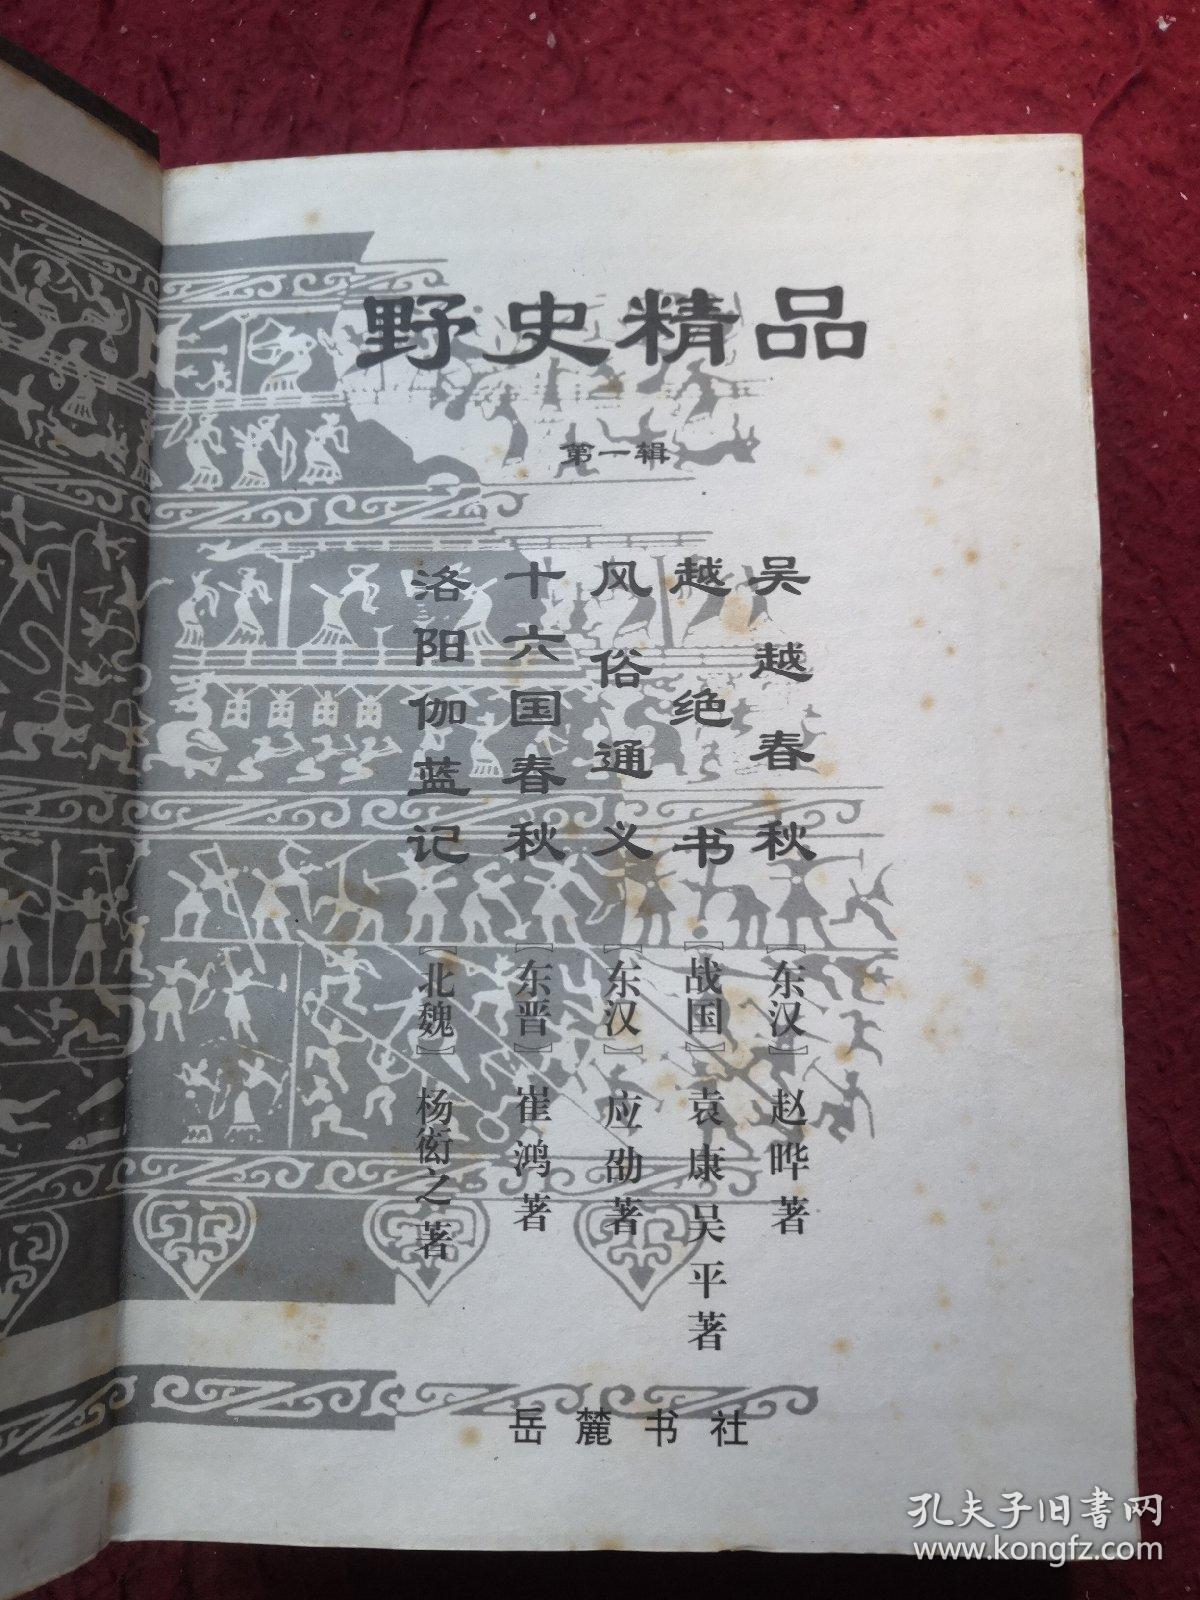 野史精品
第一辑
吴越春秋 [东汉] 赵晔著
越绝书 [战国] 袁康 吴平著
风俗通义 [东汉] 应劭著
十六国春秋 [东晋] 崔鸿著
洛阳伽蓝记 [北魏] 杨衒之著
岳麓书社
孔夫子旧书网
www.kongfz.com